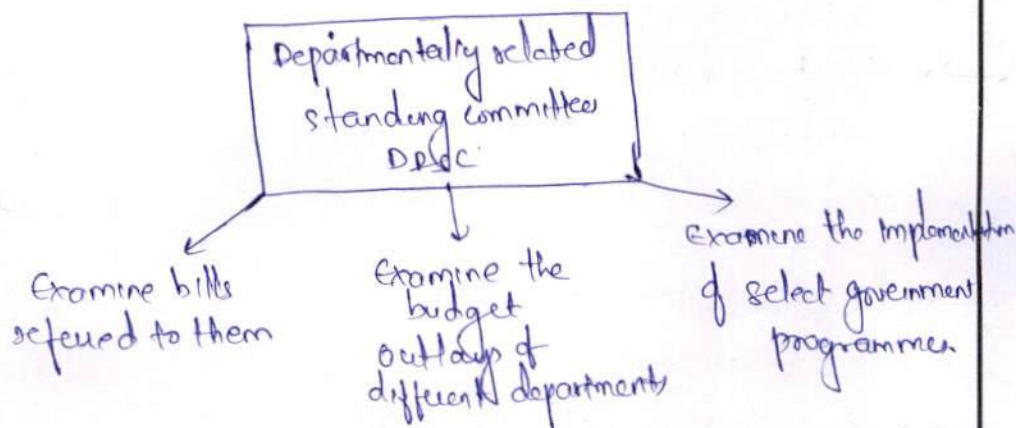 Departmentally related
standing committees
DRSC
Examine bills
referred to them
Examine the
budget
outlays of
different departments
Examine the implementation
of select government
programmes